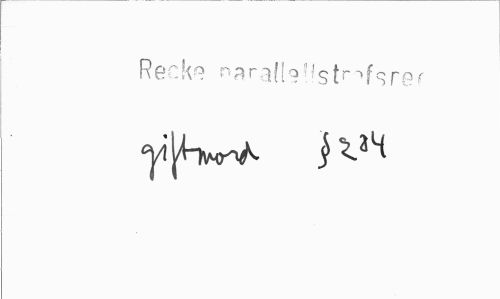 Recke parallellstrafsrec
giftmord § 284